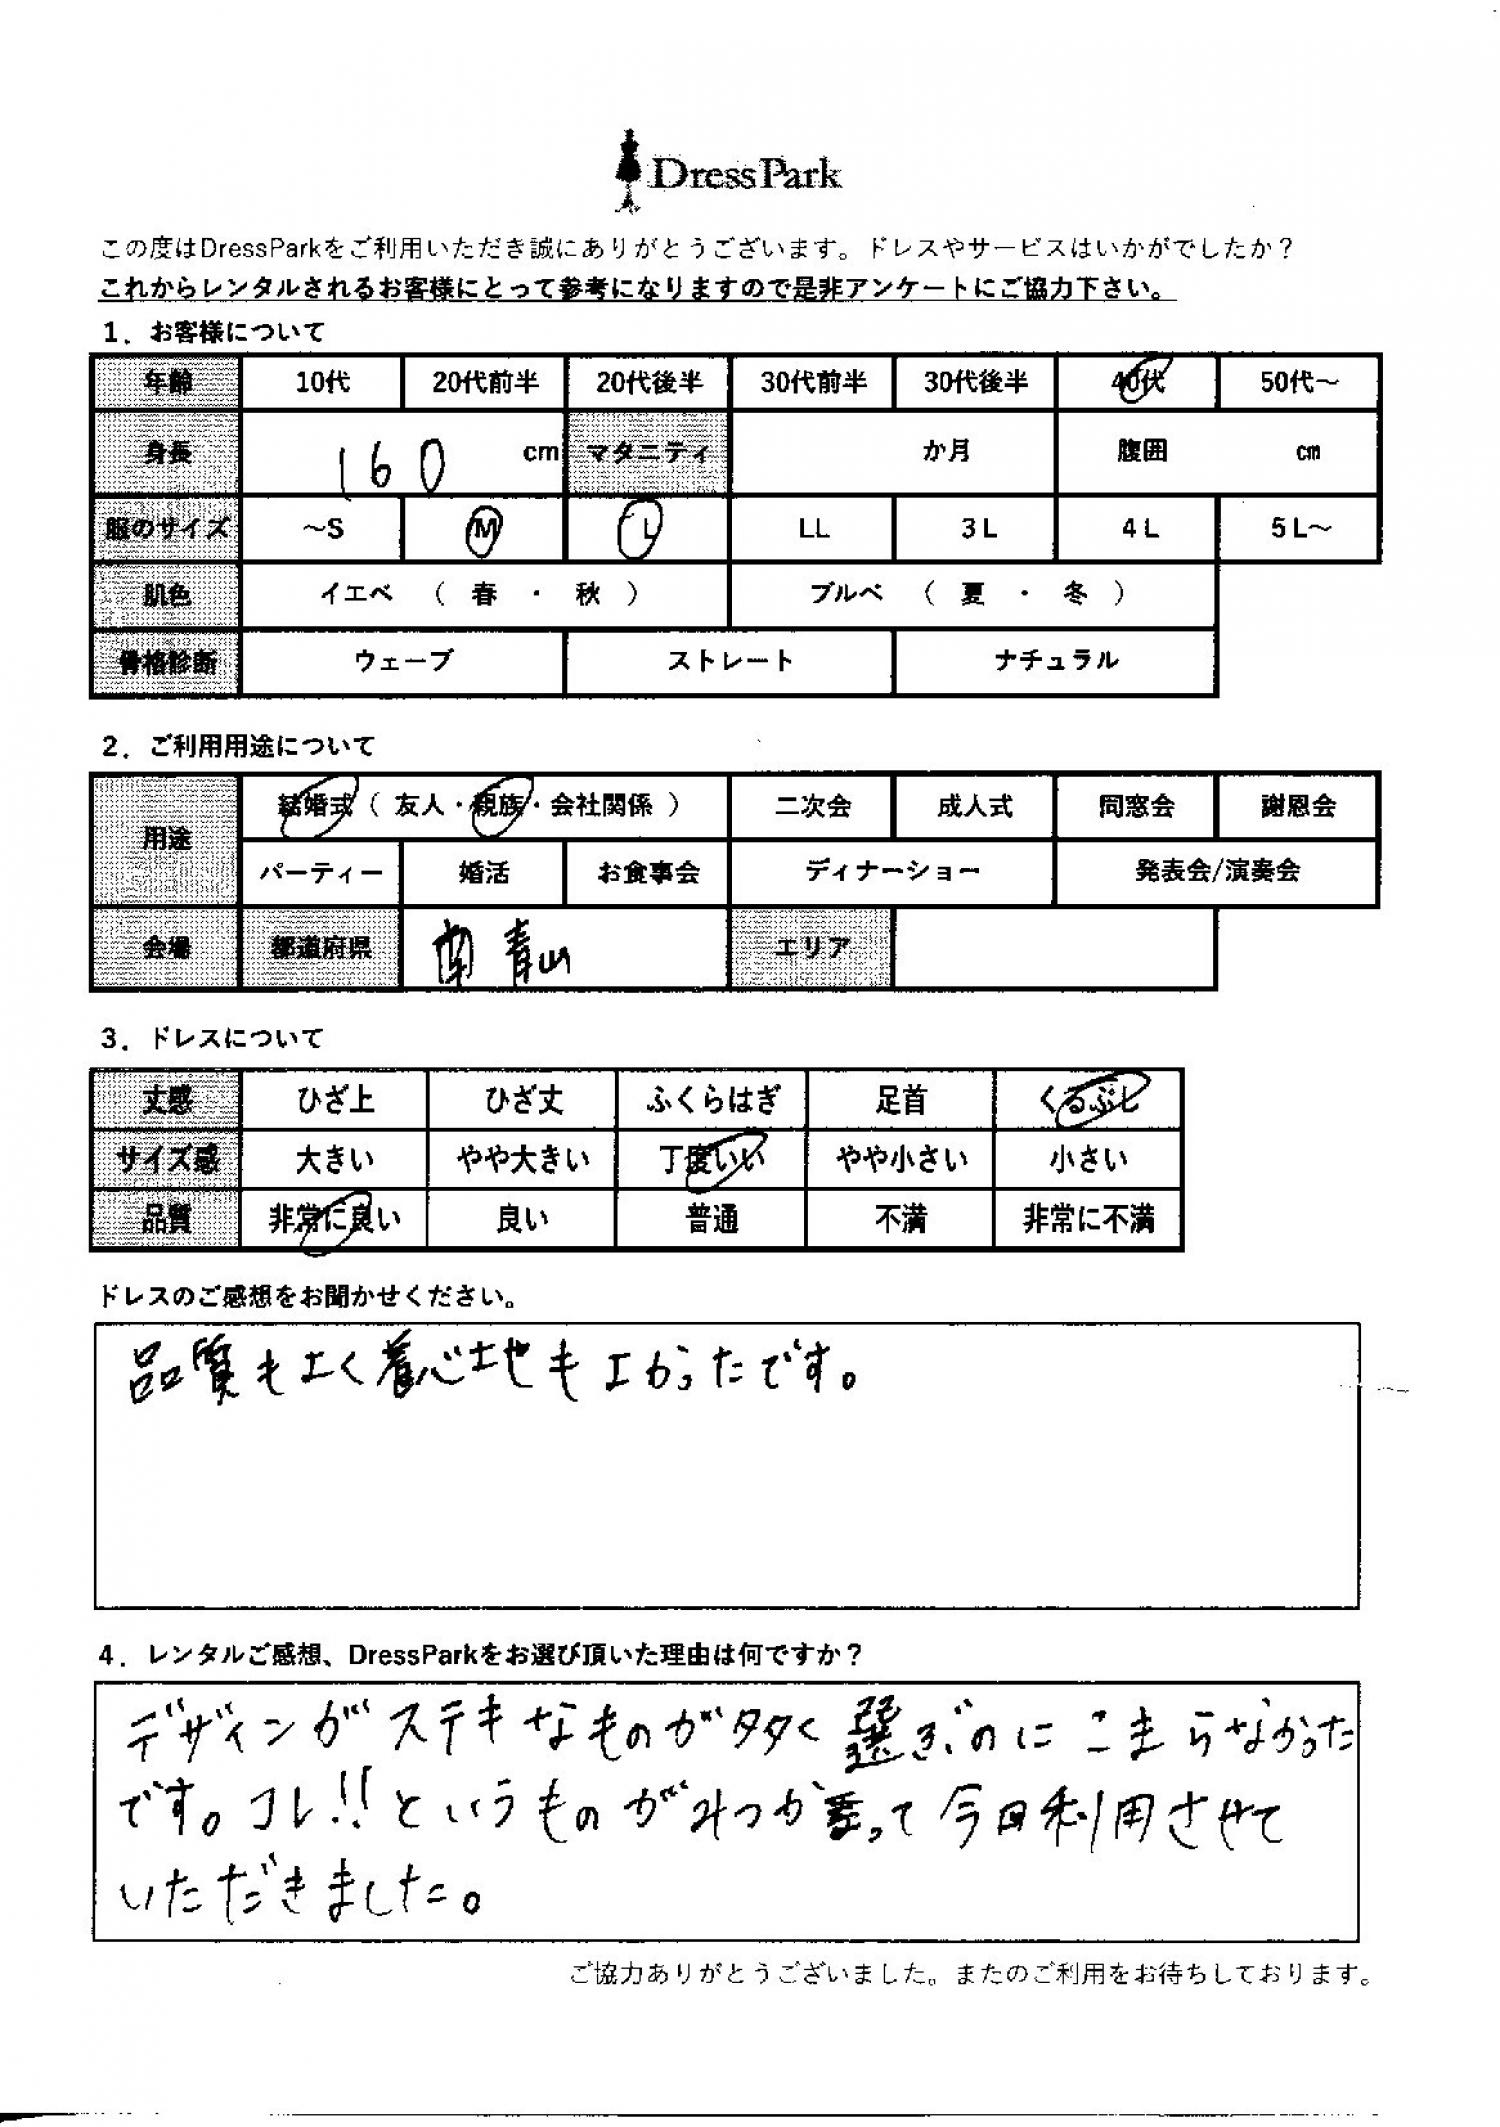 DressPark
この度はDressParkをご利用いただき誠にありがとうございます。ドレスやサービスはいかがでしたか？
これからレンタルされるお客様にとって参考になりますので是非アンケートにご協力下さい。
1．お客様について
年齢 10代 20代前半 20代後半 30代前半 30代後半 40代 50代～
身長 160 cm マタニティ か月 腹囲 cm
服のサイズ ～S M L LL 3L 4L 5L～
肌色 イエベ （ 春 ・ 秋 ） ブルベ （ 夏 ・ 冬 ）
骨格診断 ウェーブ ストレート ナチュラル
2．ご利用用途について
用途 結婚式（ 友人・親族・会社関係 ） 二次会 成人式 同窓会 謝恩会
パーティー 婚活 お食事会 ディナーショー 発表会/演奏会
会場 都道府県 南青山 エリア
3．ドレスについて
丈感 ひざ上 ひざ丈 ふくらはぎ 足首 くるぶし
サイズ感 大きい やや大きい 丁度いい やや小さい 小さい
品質 非常に良い 良い 普通 不満 非常に不満
ドレスのご感想をお聞かせください。
品質もよく着心地もよかったです。
4．レンタルご感想、DressParkをお選び頂いた理由は何ですか？
デザインがステキなものが多く選ぶのにこまらなかった
です。コレ!!というものがみつかって今回利用させて
いただきました。
ご協力ありがとうございました。またのご利用をお待ちしております。